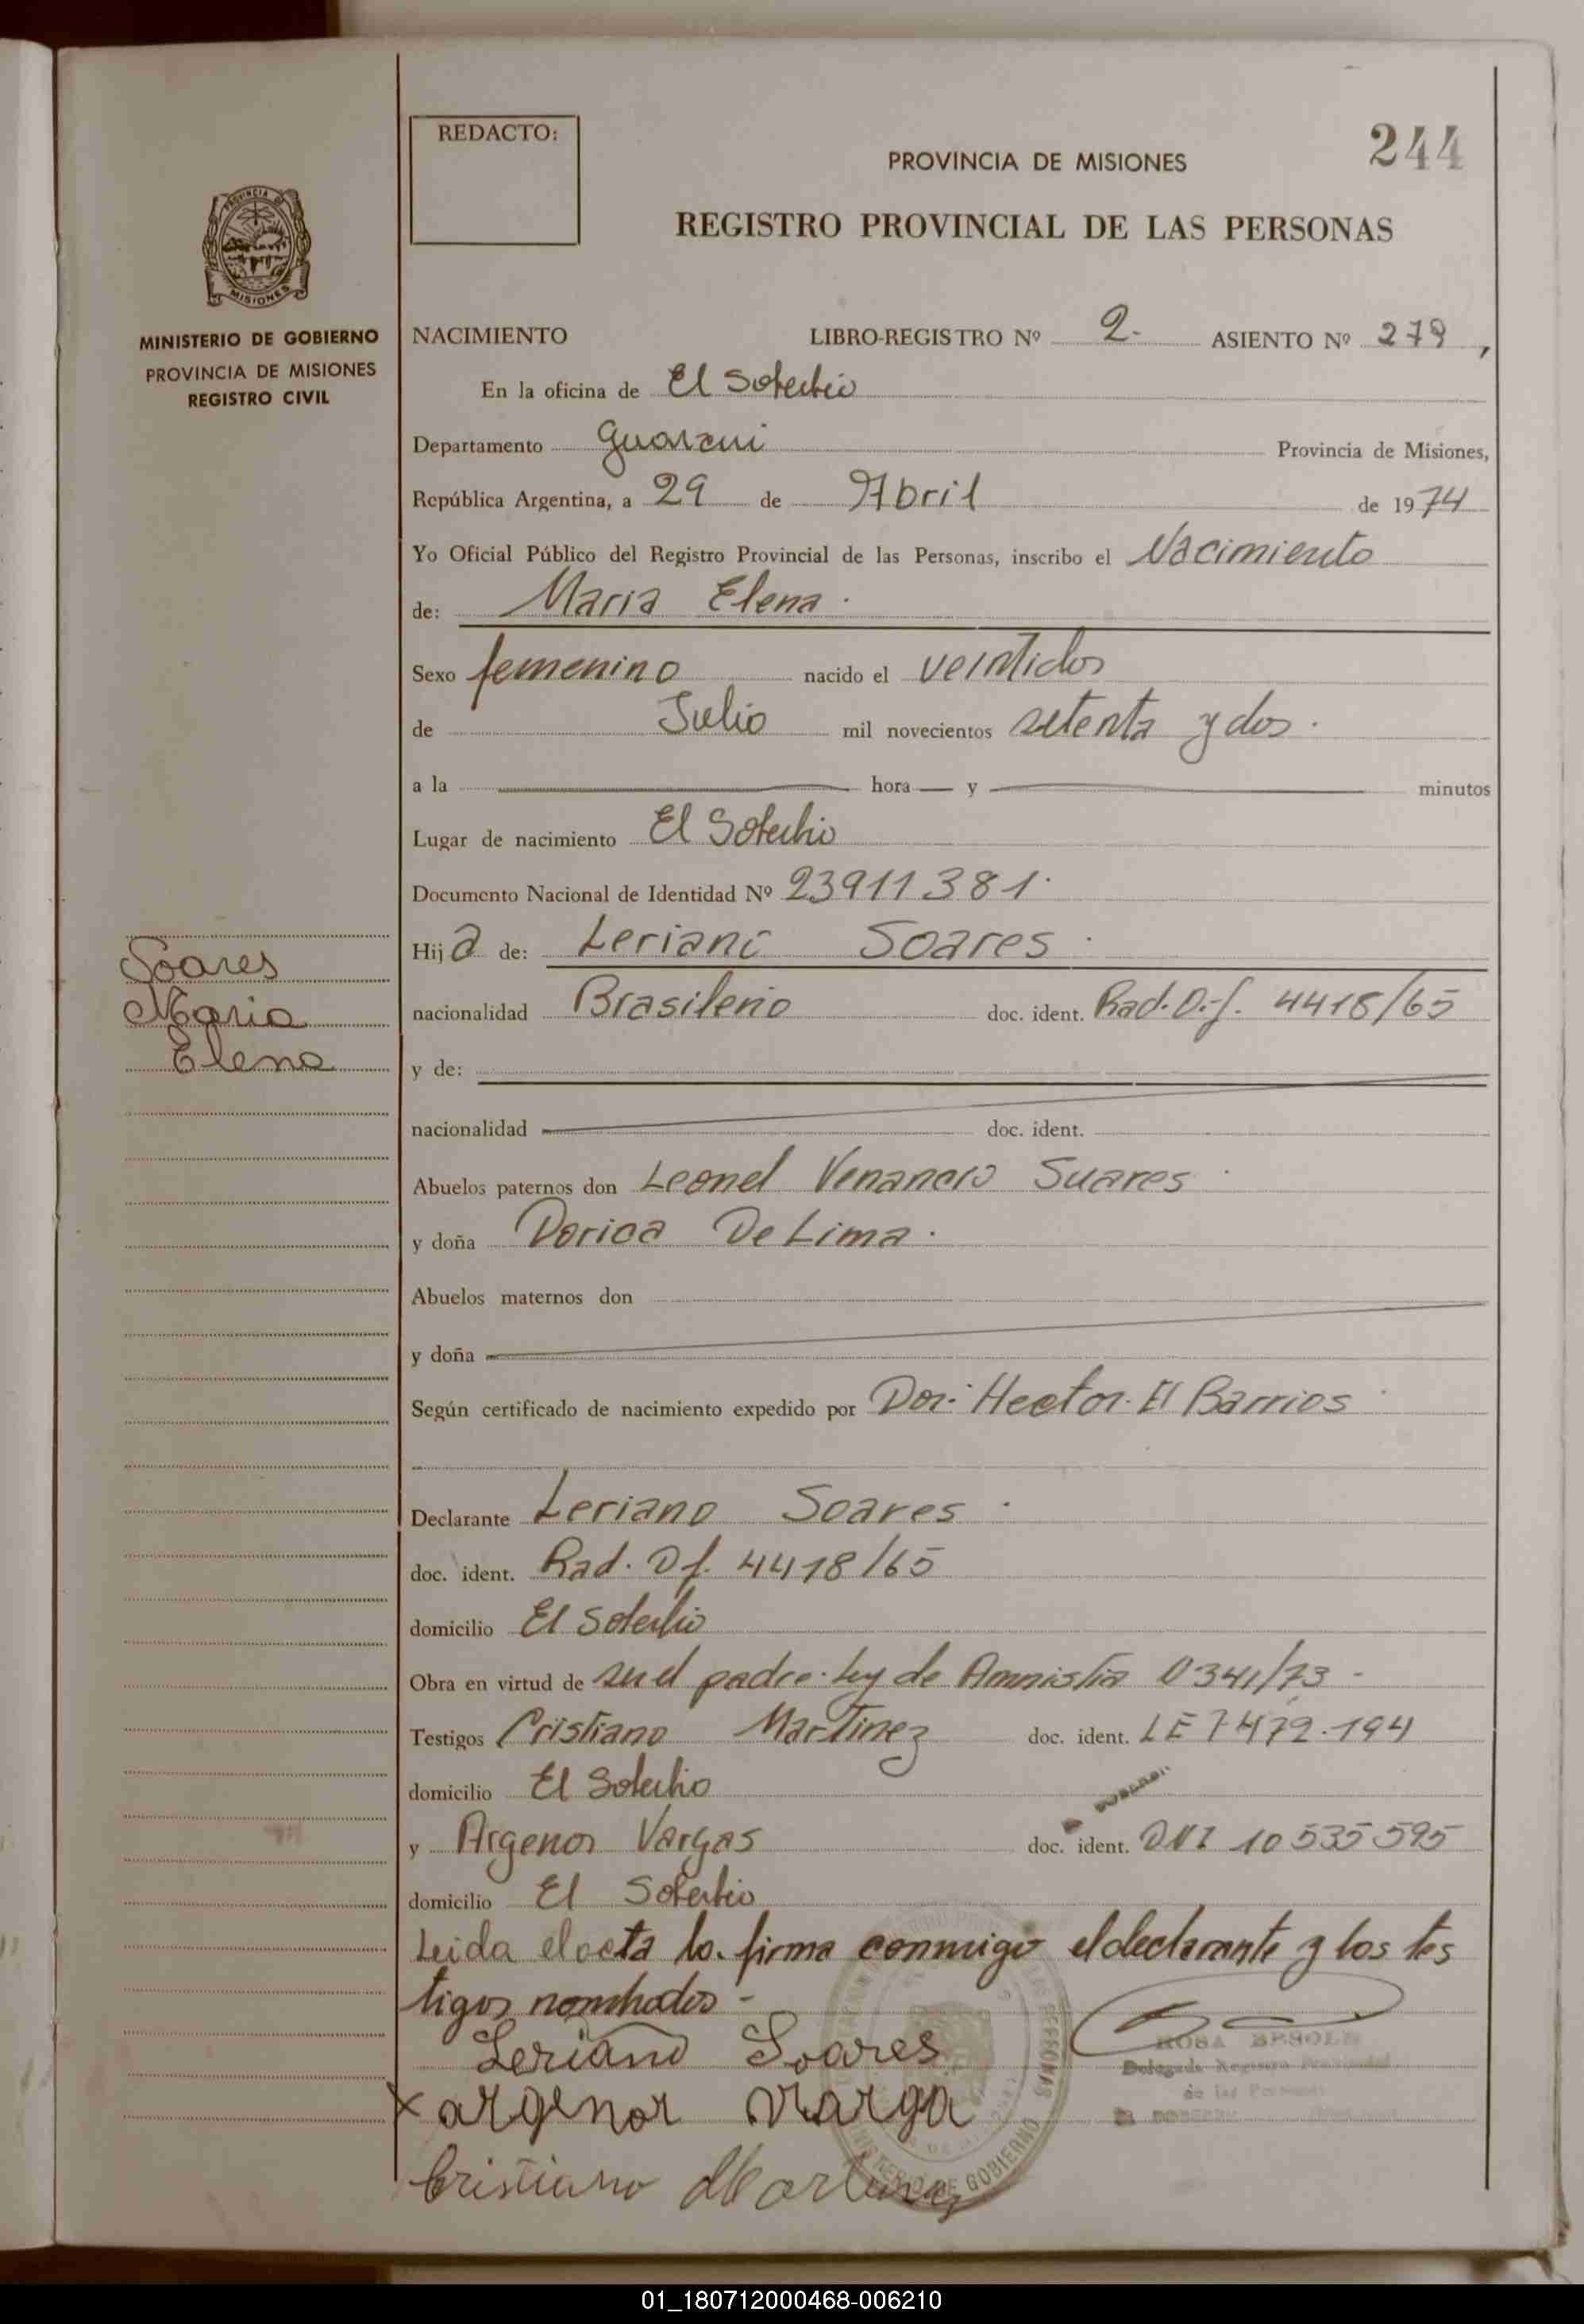 244
REDACTO:
PROVINCIA DE MISIONES
REGISTRO PROVINCIAL DE LAS PERSONAS
PROVINCIA DE
MISIONES
MINISTERIO DE GOBIERNO
PROVINCIA DE MISIONES
REGISTRO CIVIL
NACIMIENTO LIBRO-REGISTRO Nº 2- ASIENTO Nº 279,
En la oficina de El Soberbio
Departamento Guarani Provincia de Misiones,
República Argentina, a 29 de Abril de 1974
Yo Oficial Público del Registro Provincial de las Personas, inscribo el Nacimiento
de: Maria Elena.
Sexo femenino nacido el veintidos
de Julio mil novecientos setenta y dos.
a la hora y minutos
Lugar de nacimiento El Soberbio
Documento Nacional de Identidad Nº 23911381.
Soares
Maria
Elena
Hija de: Leriano Soares.
nacionalidad Brasileño doc. ident. Rad. Df. 4418/65
y de:
nacionalidad doc. ident.
Abuelos paternos don Leonel Venancio Suares.
y doña Dorica De Lima.
Abuelos maternos don
y doña
Según certificado de nacimiento expedido por Hector El Barrios.
Declarante Leriano Soares.
doc. ident. Rad. Df. 4418/65
domicilio El Soberbio
Obra en virtud de padre. Ley de Amnistia 0341/73-
Testigos Cristiano Martinez doc. ident. LE 7472.194
domicilio El Soberbio
y Argenor Vargas doc. ident. DNI 10535595
domicilio El Soberbio
Leida el acta la firma conmigo el declarante y los tes
tigos nombrados-
Leriano Soares
ROSA
Delegada Registro Provincial
de las Personas
x argenor Varga
Cristiano Martinez
MINISTERIO DE GOBIERNO
01_180712000468-006210